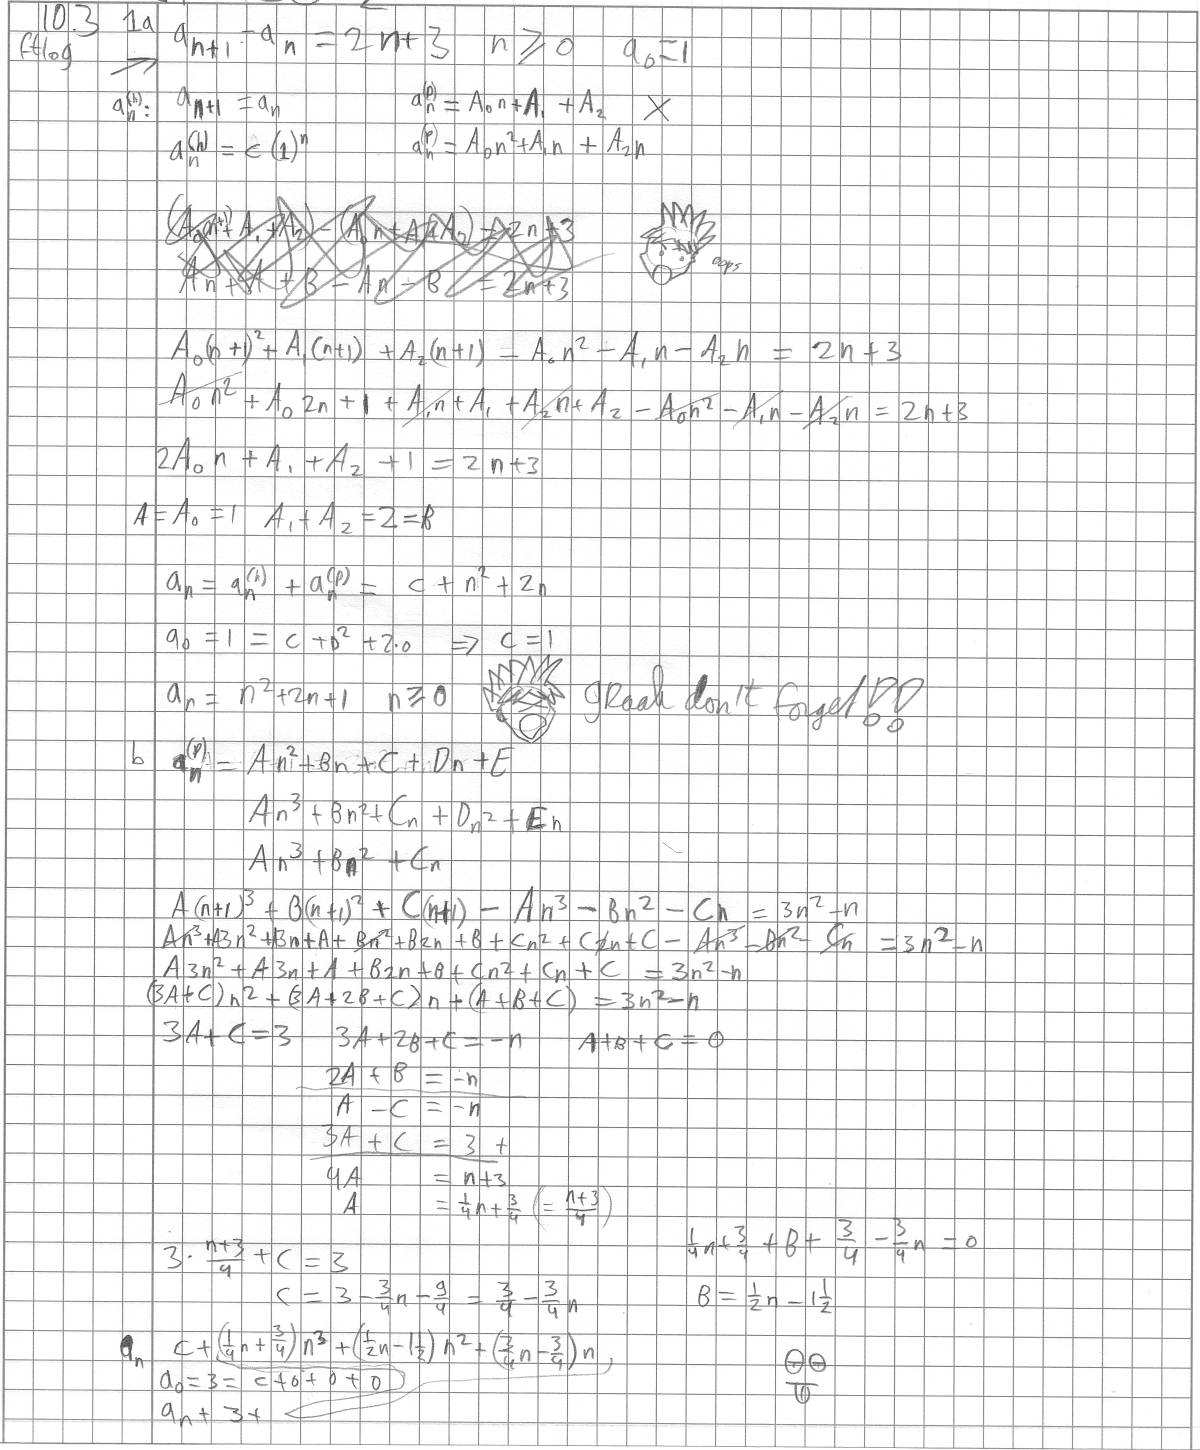 10.3 1a a_{n+1} - a_n = 2n+3 n ≥ 0 a_0=1
→
a_n^{(h)}: a_{n+1} = a_n a_n^{(p)} = A_0n+A_1+A_2 X
a_n^{(h)} = c(1)^n a_n^{(p)} = A_0n²+A_1n + A_2n
An+A+B-An-B = 2n+3
oops
A_0(n+1)²+A_1(n+1)+A_2(n+1) - A_0n² - A_1n - A_2n = 2n+3
A_0n² + A_0 2n + 1 + A_1n + A_1 + A_2n + A_2 - A_0n² - A_1n - A_2n = 2n+3
2A_0n + A_1 + A_2 + 1 = 2n+3
A = A_0 = 1 A_1+A_2 = 2 = B
a_n = a_n^{(h)} + a_n^{(p)} = c + n² + 2n
a_0 = 1 = c + 0² + 2·0 ⇒ c = 1
a_n = n²+2n+1 n≥0 graah don't forget!!
b a_n^{(p)} = An²+Bn+C+Dn+E
An³+Bn²+Cn+Dn²+En
An³+Bn²+Cn
A(n+1)³ + B(n+1)² + C(n+1) - An³ - Bn² - Cn = 3n²-n
An³+A3n²+A3n+A+Bn²+B2n+B+Cn²+C2n+C-An³-Bn²-Cn = 3n²-n
A3n²+A3n+A+B2n+B+Cn²+Cn+C = 3n²-n
(3A+C)n² + (3A+2B+C)n + (A+B+C) = 3n²-n
3A+C=3 3A+2B+C=-n A+B+C=0
2A+B = -n
A - C = -n
3A + C = 3 +
4A = n+3
A = ¼n+¾ (= \frac{n+3}{4})
3·\frac{n+3}{4} + C = 3 ¼n+¾+B+¾-¾n = 0
C = 3-¾n-\frac{9}{4} = ¾-¾n B = ½n-1½
a_n c+(¼n+¾)n³+(½n-1½)n²+(¾n-¾)n,
a_0=3= c+0+0+0
a_n + 3+